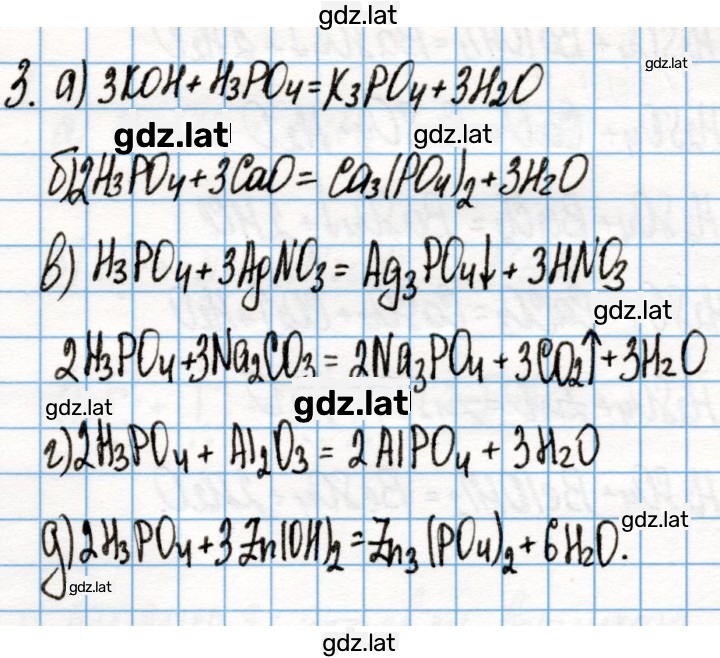 gdz.lat
gdz.lat
3. а) 3KOH + H₃PO₄ = K₃PO₄ + 3H₂O
gdz.lat gdz.lat
б) 2H₃PO₄ + 3CaO = Ca₃(PO₄)₂ + 3H₂O
в) H₃PO₄ + 3AgNO₃ = Ag₃PO₄↓ + 3HNO₃
gdz.lat
2H₃PO₄ + 3Na₂CO₃ = 2Na₃PO₄ + 3CO₂↑ + 3H₂O
gdz.lat gdz.lat
г) 2H₃PO₄ + Al₂O₃ = 2AlPO₄ + 3H₂O
gdz.lat
д) 2H₃PO₄ + 3Zn(OH)₂ = Zn₃(PO₄)₂ + 6H₂O.
gdz.lat
gdz.lat